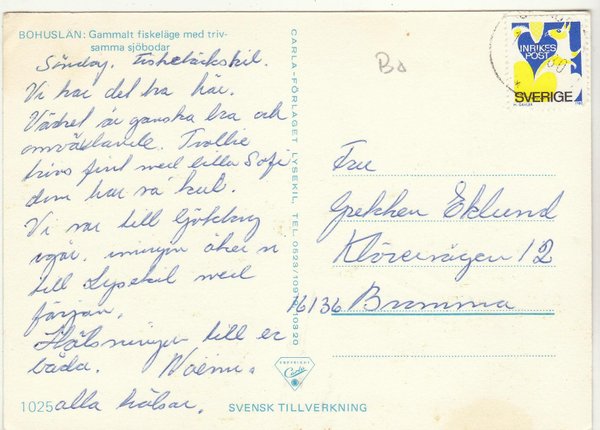 BOHUSLÄN: Gammalt fiskeläge med triv-
samma sjöbodar
Söndag. Fiskebäckskil.
Vi har det bra här.
Vädret är ganska bra och
omväxlande. Trollie
trivs fint med lilla Sofi
dom har så kul.
Vi var till
igår. imorgon åker vi
till Lysekil med
färjan.
Hälsningar till er
båda. Noemi.
alla hälsar.
1025
SVENSK TILLVERKNING
CARLA-FÖRLAGET LYSEKIL, TEL. 0523/109
COPYRIGHT
Carla
Bo
INRIKES
POST
SVERIGE
Fru
Gretchen Eklund
Klövervägen 12
16136 Bromma